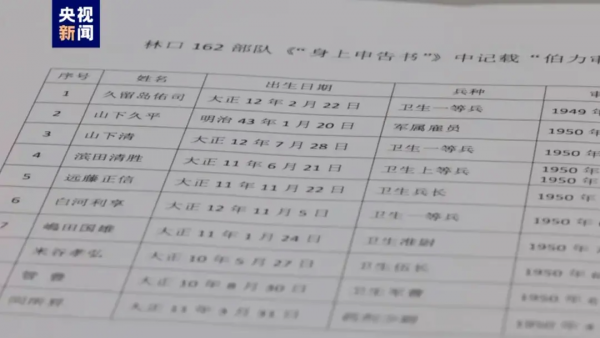 央视
新闻
林口 162 部队《“身上申告书”》中记载“伯力审
序号 姓名 出生日期 兵种
1 久留岛佑司 大正 12 年 2 月 22 日 卫生一等兵 1949 年
2 山下久平 明治 43 年 1 月 20 日 军属雇员 1950 年
3 山下清 大正 12 年 7 月 28 日 卫生一等兵 1950 年
4 滨田清胜 大正 11 年 6 月 21 日 卫生上等兵 1950 年
1950 年
5 远藤正信 大正 11 年 11 月 22 日 卫生兵长 1950 年
6 白河利享 大正 12 年 11 月 5 日 卫生一等兵 1950 年
7 嶋田国雄 大正 11 年 1 月 24 日 卫生准尉 1950 年
米谷孝弘 大正 10 年 5 月 27 日 卫生伍长 1950 年
大正 10 年 8 月 30 日 卫生军曹 1950 年
大正 11 年 3 月 31 日 1950 年